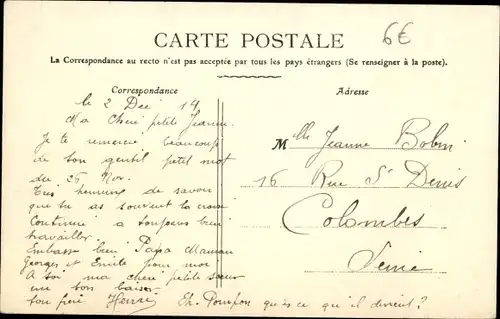 6€
CARTE POSTALE
La Correspondance au recto n'est pas acceptée par tous les pays étrangers (Se renseigner à la poste).
Correspondance
Adresse
le 2 Dec 14
Ma Cheri petite Jeanne.
Je te remercie beaucoup
de ton gentil petit mot
du 26 Nov.
Très de savoir
que tu as souvent la croix
Continue a toujours bien
travailler.
Embasse bien Papa Maman
Georges et Emile pour moi
A toi ma cheri petite soeur
un bon baiser
ton frèe Henri Et Pompon qu'es ce qu'il devient?
Mlle Jeanne Bobin
16 Rue St Denis
Colombes
Seine